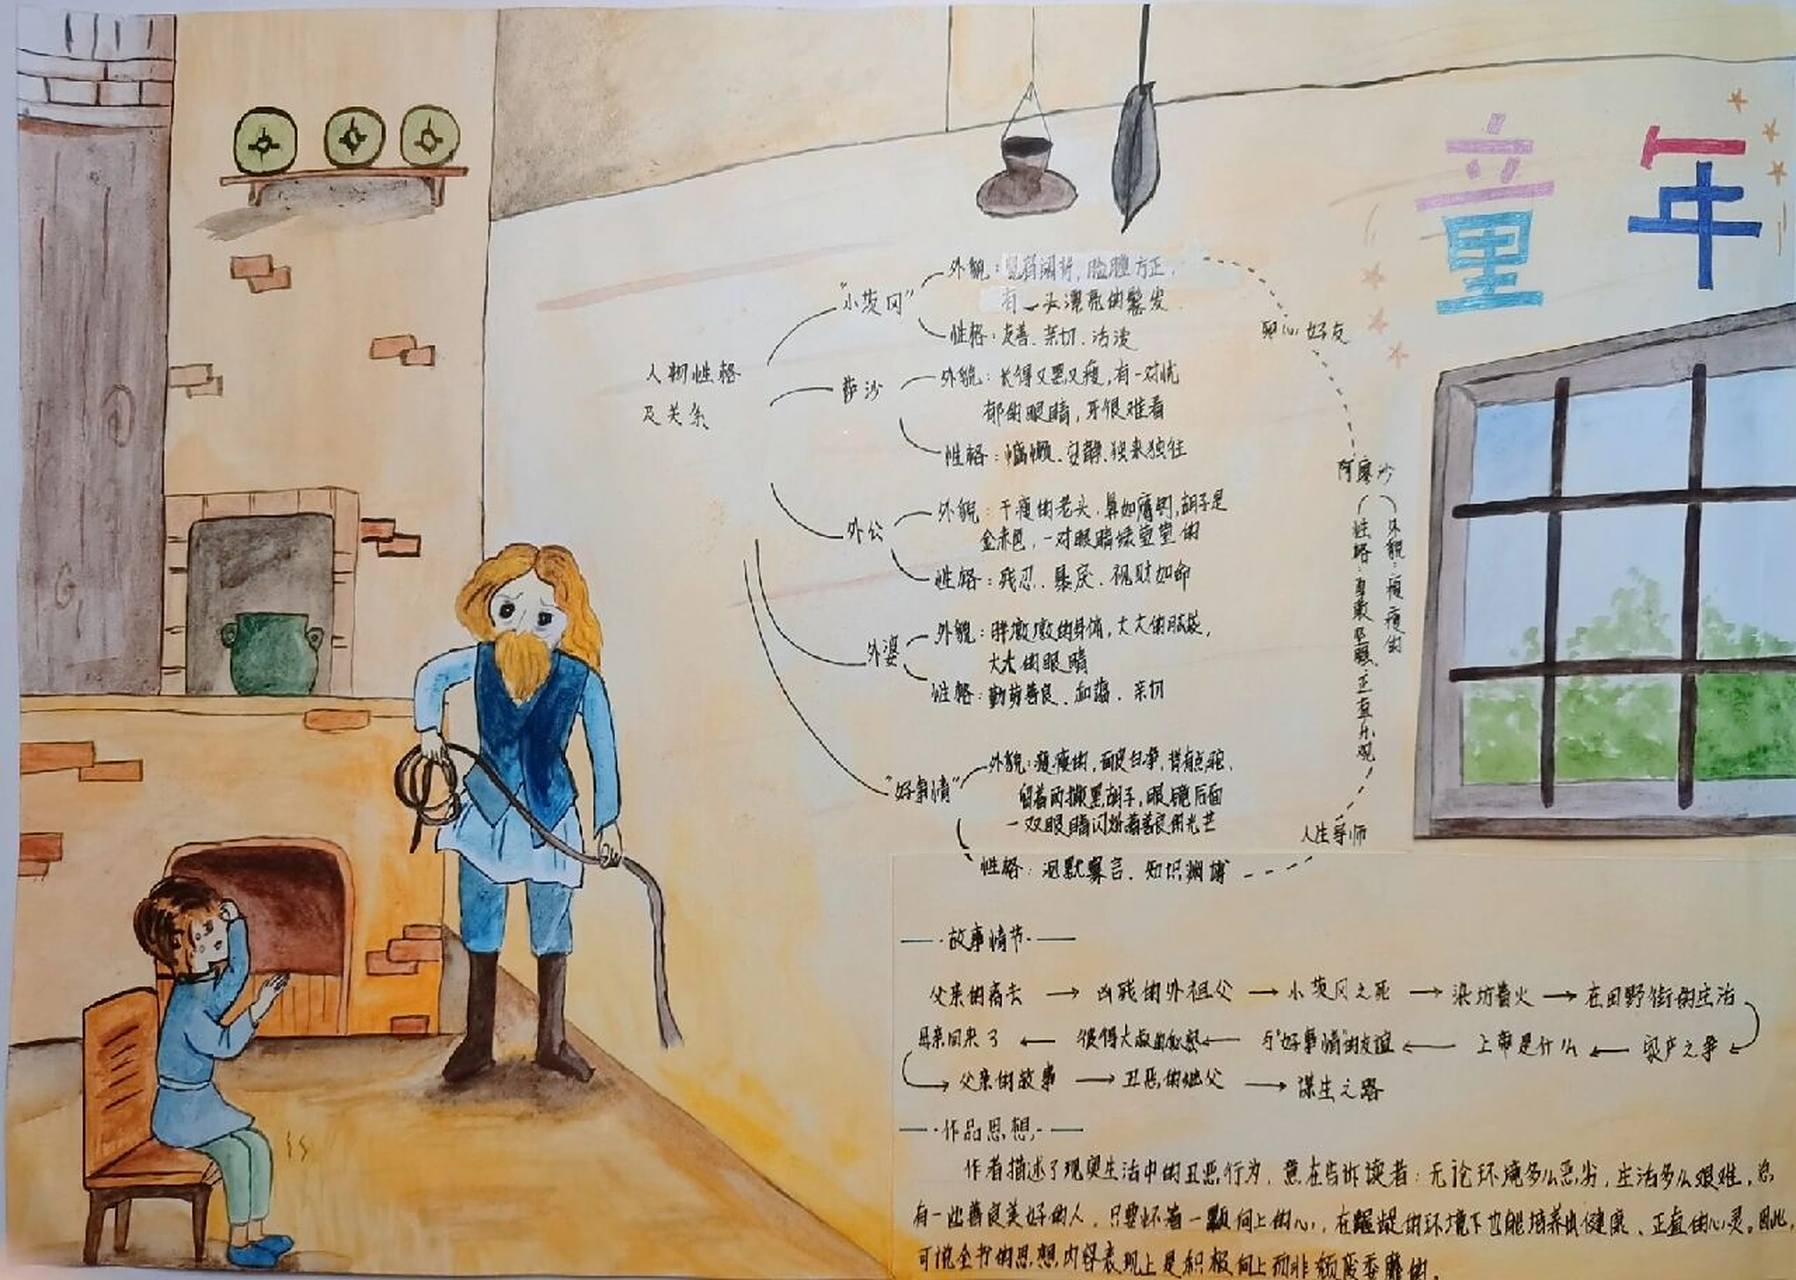 童年
人物性格
及关系
"小茨冈"
外貌：
肩阔，脸膛方正，
有一头漂亮的鬈发
性格：友善、亲切、活泼
知心好友
萨沙
外貌：长得又黑又瘦，有一对忧
郁的眼睛，牙很难看
性格：慵懒、安静、独来独往
外公
外貌：干瘦的老头，鼻如鹰钩，胡子是
金赤色，一对眼睛绿莹莹的
性格：残忍、暴戾、视财如命
外婆
外貌：胖墩墩的身体，大大的脑袋，
大大的眼睛
性格：勤劳善良、和蔼、亲切
"好事情"
外貌：瘦瘦的，面皮白净，背有点驼，
留着两撇黑胡子，眼镜后面
一双眼睛闪烁着善良的光芒
性格：沉默寡言、知识渊博
阿廖沙
外貌：瘦瘦的
性格：勇敢坚强、正直乐观
人生导师
故事情节
父亲的离去 → 凶残的外祖父 → 小茨冈之死 → 染坊着火 → 在田野街的生活
母亲回来了 ← 彼得大叔的 ← 与"好事情"的友谊 ← 上帝是什么 ← 家产之争
父亲的故事 → 丑恶的继父 → 谋生之路
作品思想
作者描述了现实生活中的丑恶行为，意在告诉读者：无论环境多么恶劣，生活多么艰难，总
有一些善良美好的人，只要怀着一颗向上的心，在龌龊的环境下也能培养出健康、正直的心灵。因此，
可说全书的思想内容表现上是积极向上而非颓废委靡的。